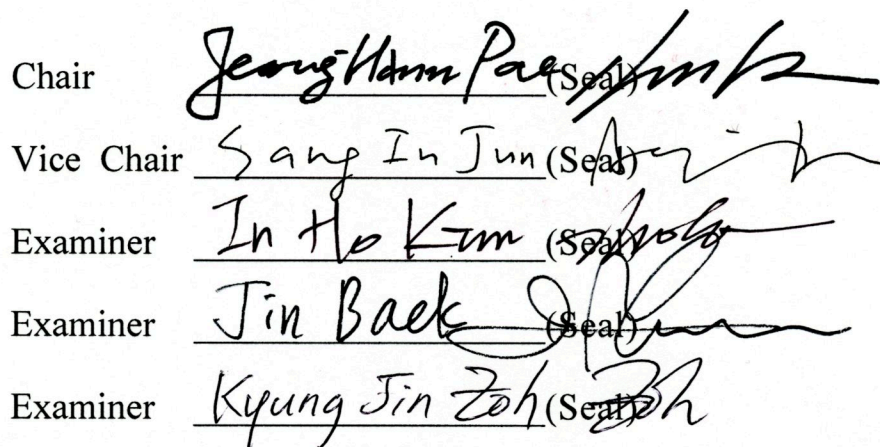 Chair JeongHann Pae (Seal)
Vice Chair Sang In Jun (Seal)
Examiner In Ho Kim (Seal)
Examiner Jin Baek (Seal)
Examiner Kyung Jin Zoh (Seal) Zoh